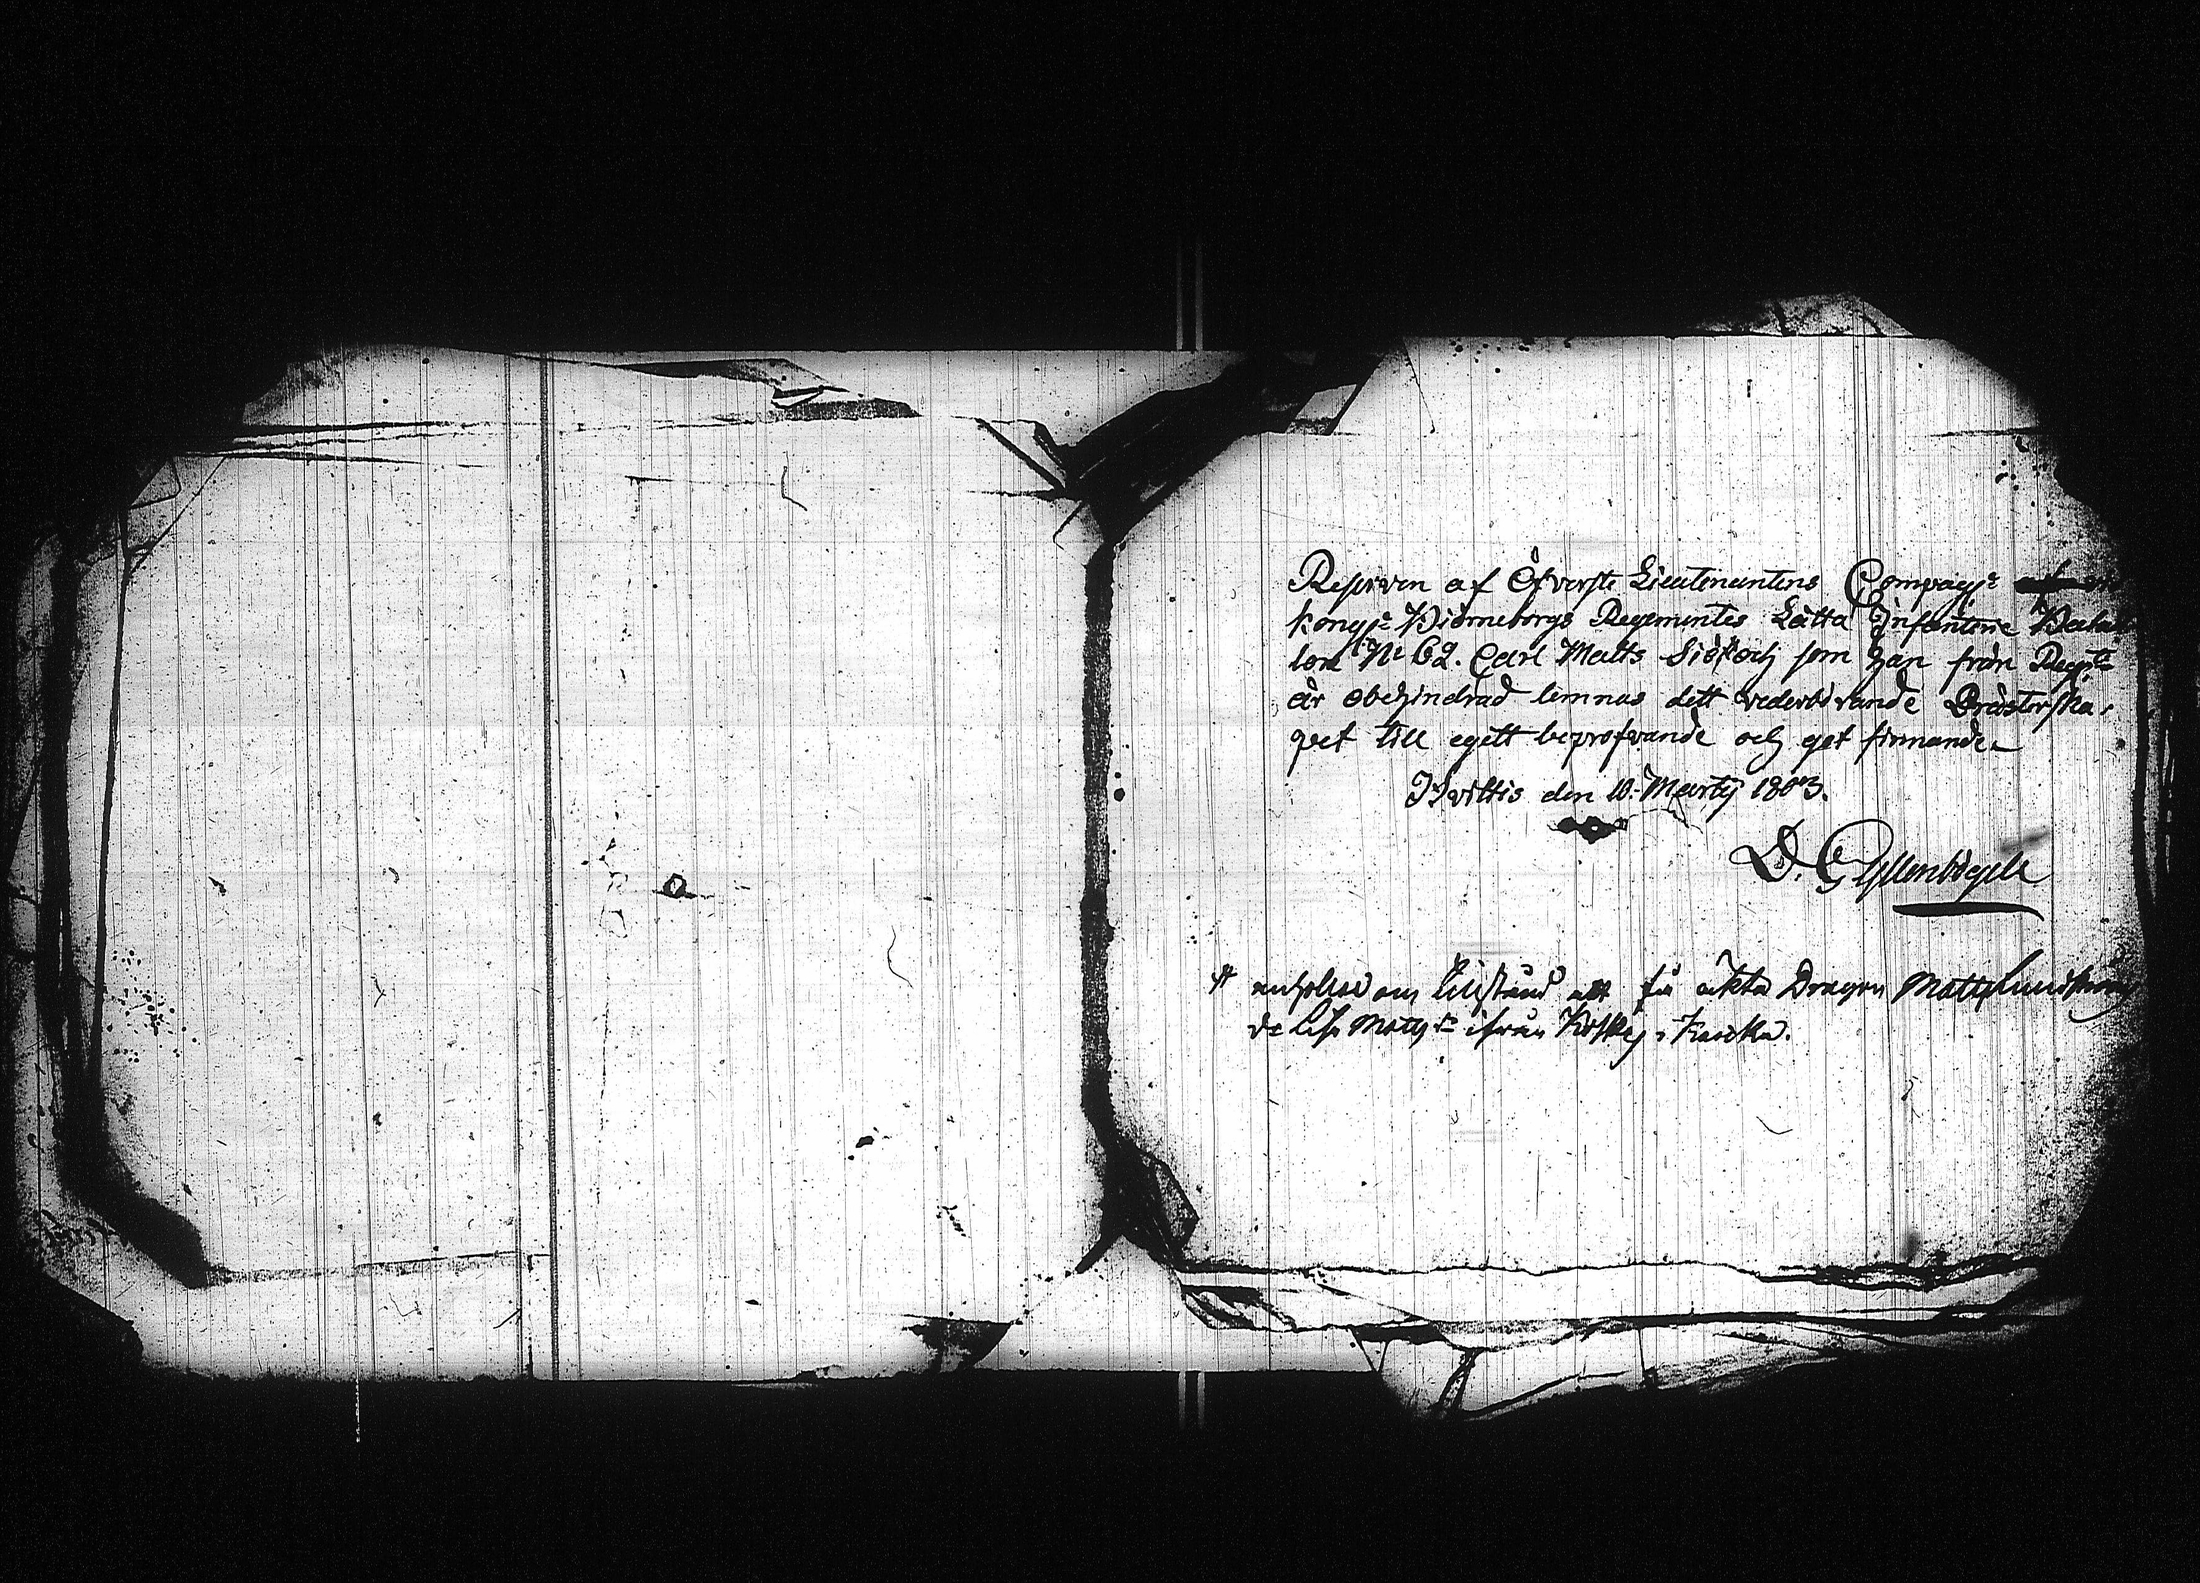 Reserven af Öfverste Lieutenantens Compagje
kongl: Björneborgs Regementes Lätta Infanterie Batal
lion N: 62. Carl Matts Siö och som han från Regte
är obehindrad lemnas dett vederbörande Prästerska,
pet till egett beprofvande och got finnande.
Hvittis den 10: Martij 1803.
D. Gyllenbögell
anholles om tillstånd att få äkta Dragon Matts Lundström
ifrån